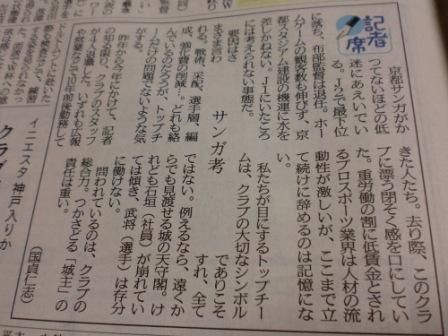 記者席
京都サンガがか
つてないほどの低
迷にあえいでい
る。J2で最下位
に落ち、布部監督は退任。ホー
ムゲームの観客数も伸びず、京
都スタジアム建設の機運に水を
差しかねない。J1にいたころ
には考えられない事態だ。
要因はさ
まざま言わ
れる。戦術、采配、選手層、編
成、強化費の削減…。どれも絡
んでいるのだろうが、トップチ
ームだけの問題でないような気
がする。
昨年から今年にかけて、記者
の知る限り、クラブのスタッフ
が4人退職した。いずれも広報
や営業などで10年前後勤務して
サンガ考
きた人たち。去り際、このクラ
ブに漂う閉そく感を口にしてい
た。重労働の割に低賃金とされ
るプロスポーツ業界は人材の流
動性が激しいが、ここまで立
て続けに辞めるのは記憶にな
い。
私たちが目にするトップチー
ムは、クラブの大切なシンボル
でありこそ
すれ、全て
ではない。例えるなら、遠くか
らでも見渡せる城の天守閣。け
れども石垣（社員）が崩れてい
ては傾き、武将（選手）は存分
に働けない。
問われているのは、クラブの
総合力。つかさどる「城主」の
責任は重い。
（国貞仁志）
イニエスタ 神戸入りか